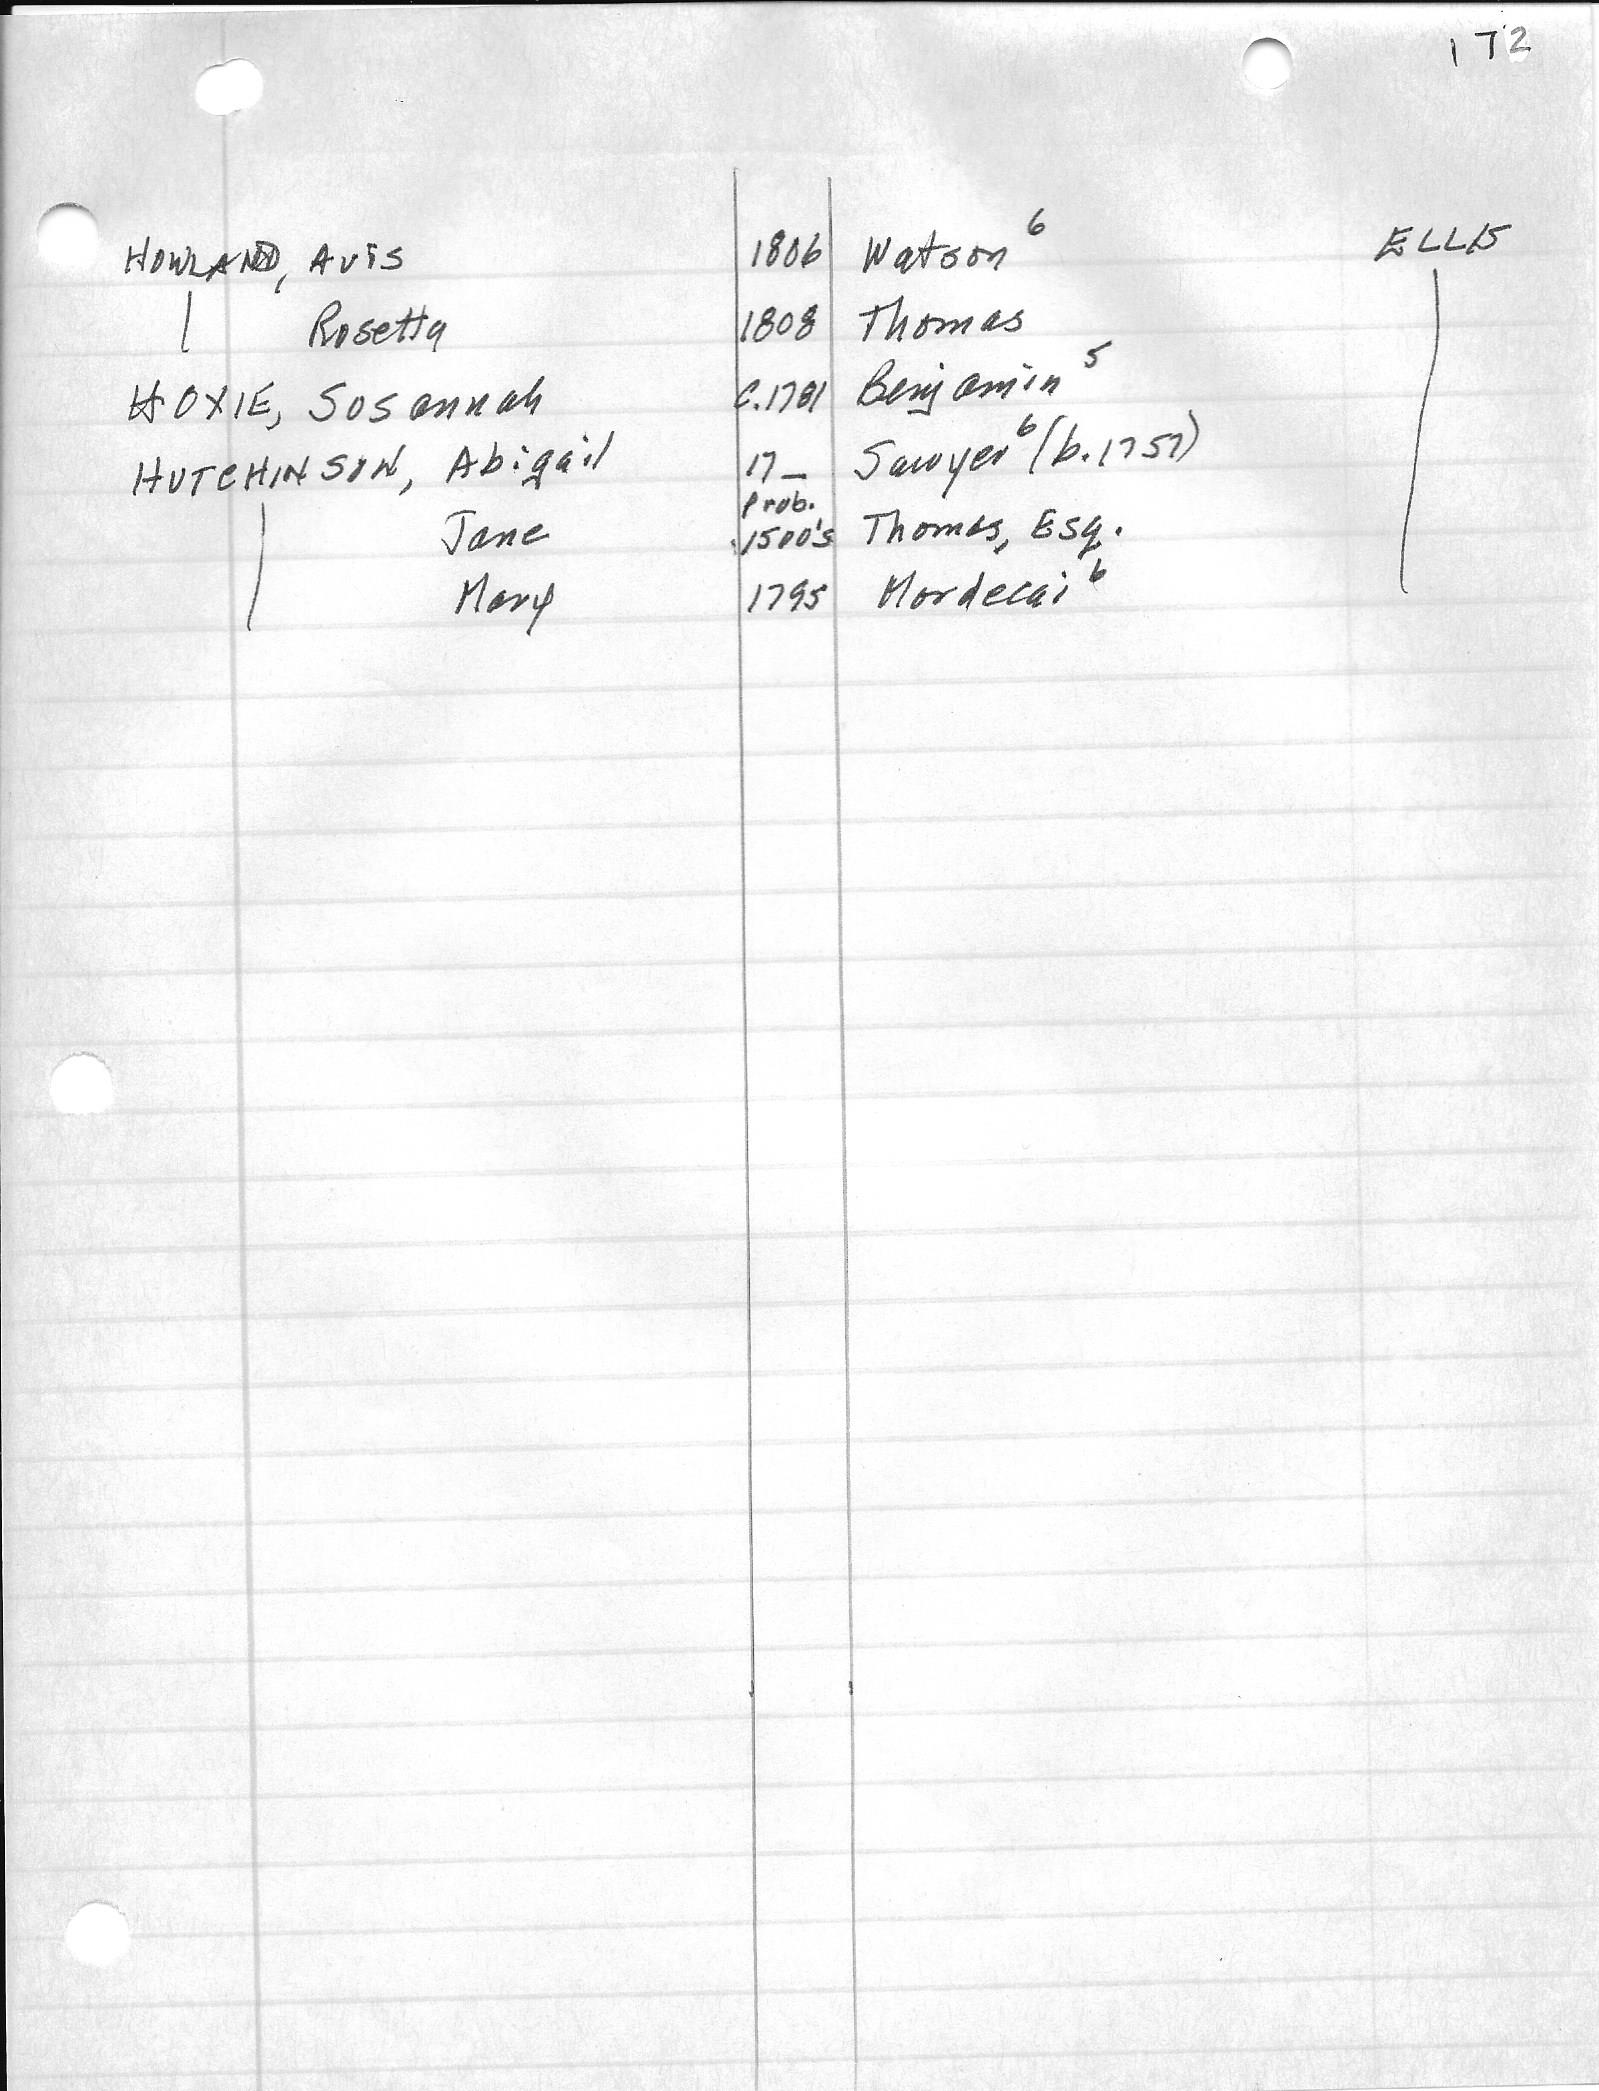 172
HOWLAND, Avis 1806 Watson⁶ ELLIS
Rosetta 1808 Thomas
HOXIE, Susannah c.1781 Benjamin⁵
HUTCHINSON, Abigail 17_ Sawyer⁶ (b.1757)
Prob.
Jane 1500's Thomas, Esq.
Mary 1795 Mordecai⁶